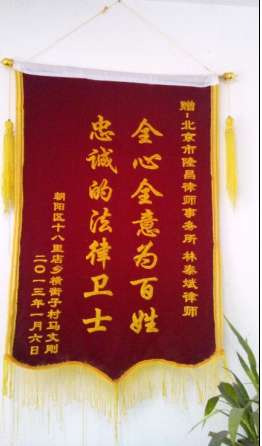 赠:北京市隆昌律师事务所 林泰斌律师
全心全意为百姓
忠诚的法律卫士
朝阳区十八里店乡横街子村马文刚
二〇一三年一月六日